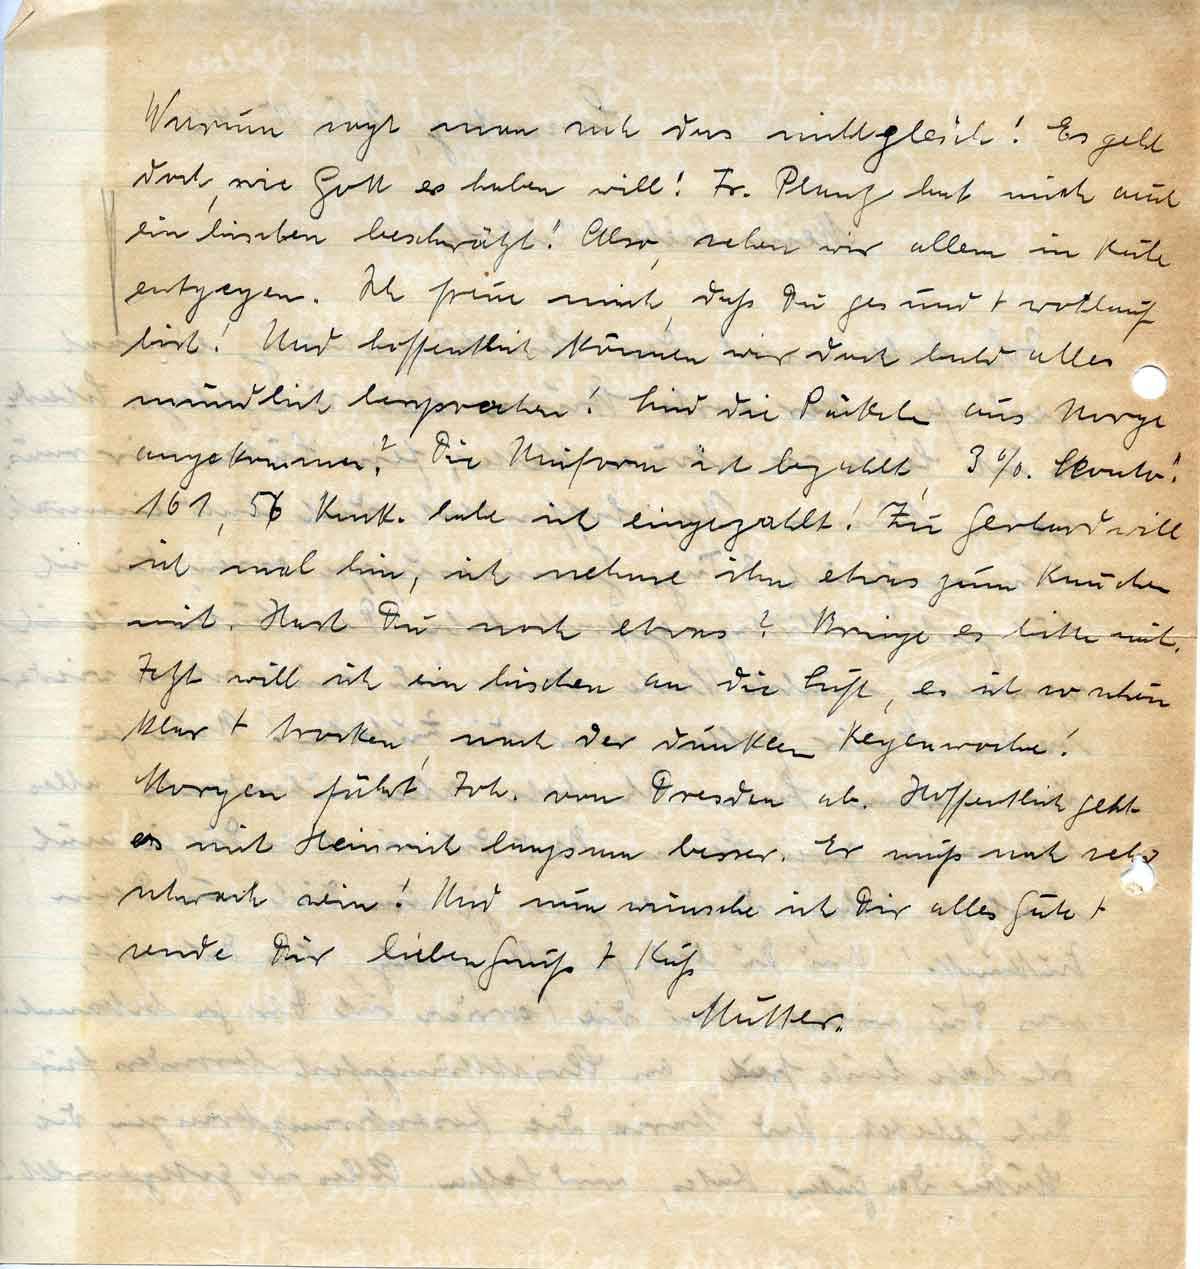 Warum sagt man sich das nicht gleich! Es geht
doch, wie Gott es haben will! Fr. Planz hat mich auch
ein bischen beschwätzt! Also, sehen wir allem in Ruhe
entgegen. Ich freue mich, daß Du gesund + wohlauf
bist! Und hoffentlich können wir doch bald alles
mündlich besprechen! Sind die Päckchen aus Norge
angekommen? Die Uniform ist bezahlt, 3%. Skonto!
161,56 Rmk. habe ich eingezahlt! Zu Gerhard will
ich mal hin, ich nehme ihm etwas zum Rauchen
mit. Hast Du noch etwas? Bringe es bitte mit.
Jetzt will ich ein bischen an die Luft, es ist so schön
klar + trocken, nach der dunklen Regenwoche!
Morgen fährt Joh. von Dresden ab. Hoffentlich geht
es mit Heinrich langsam besser. Er muß noch sehr
schwach sein! Und nun wünsche ich Dir alles Gute +
sende Dir lieben Gruß + Kuß
Mutter.